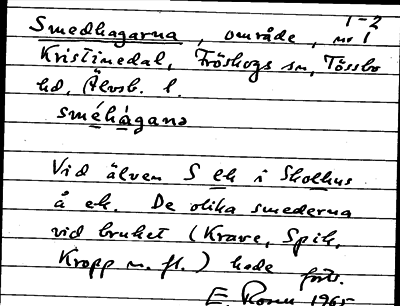 1-2
Smedhagarna, område, nr 1
Kristinedal, Fröskogs sn, Tössbo
hd, Älvsb. l.
sméhàganə
Vid älven S ek i Skolhus
å ek. De olika smederna
vid bruket (Krave, Spik,
Kropp m. fl.) hade forts.
E. Rosn 1965